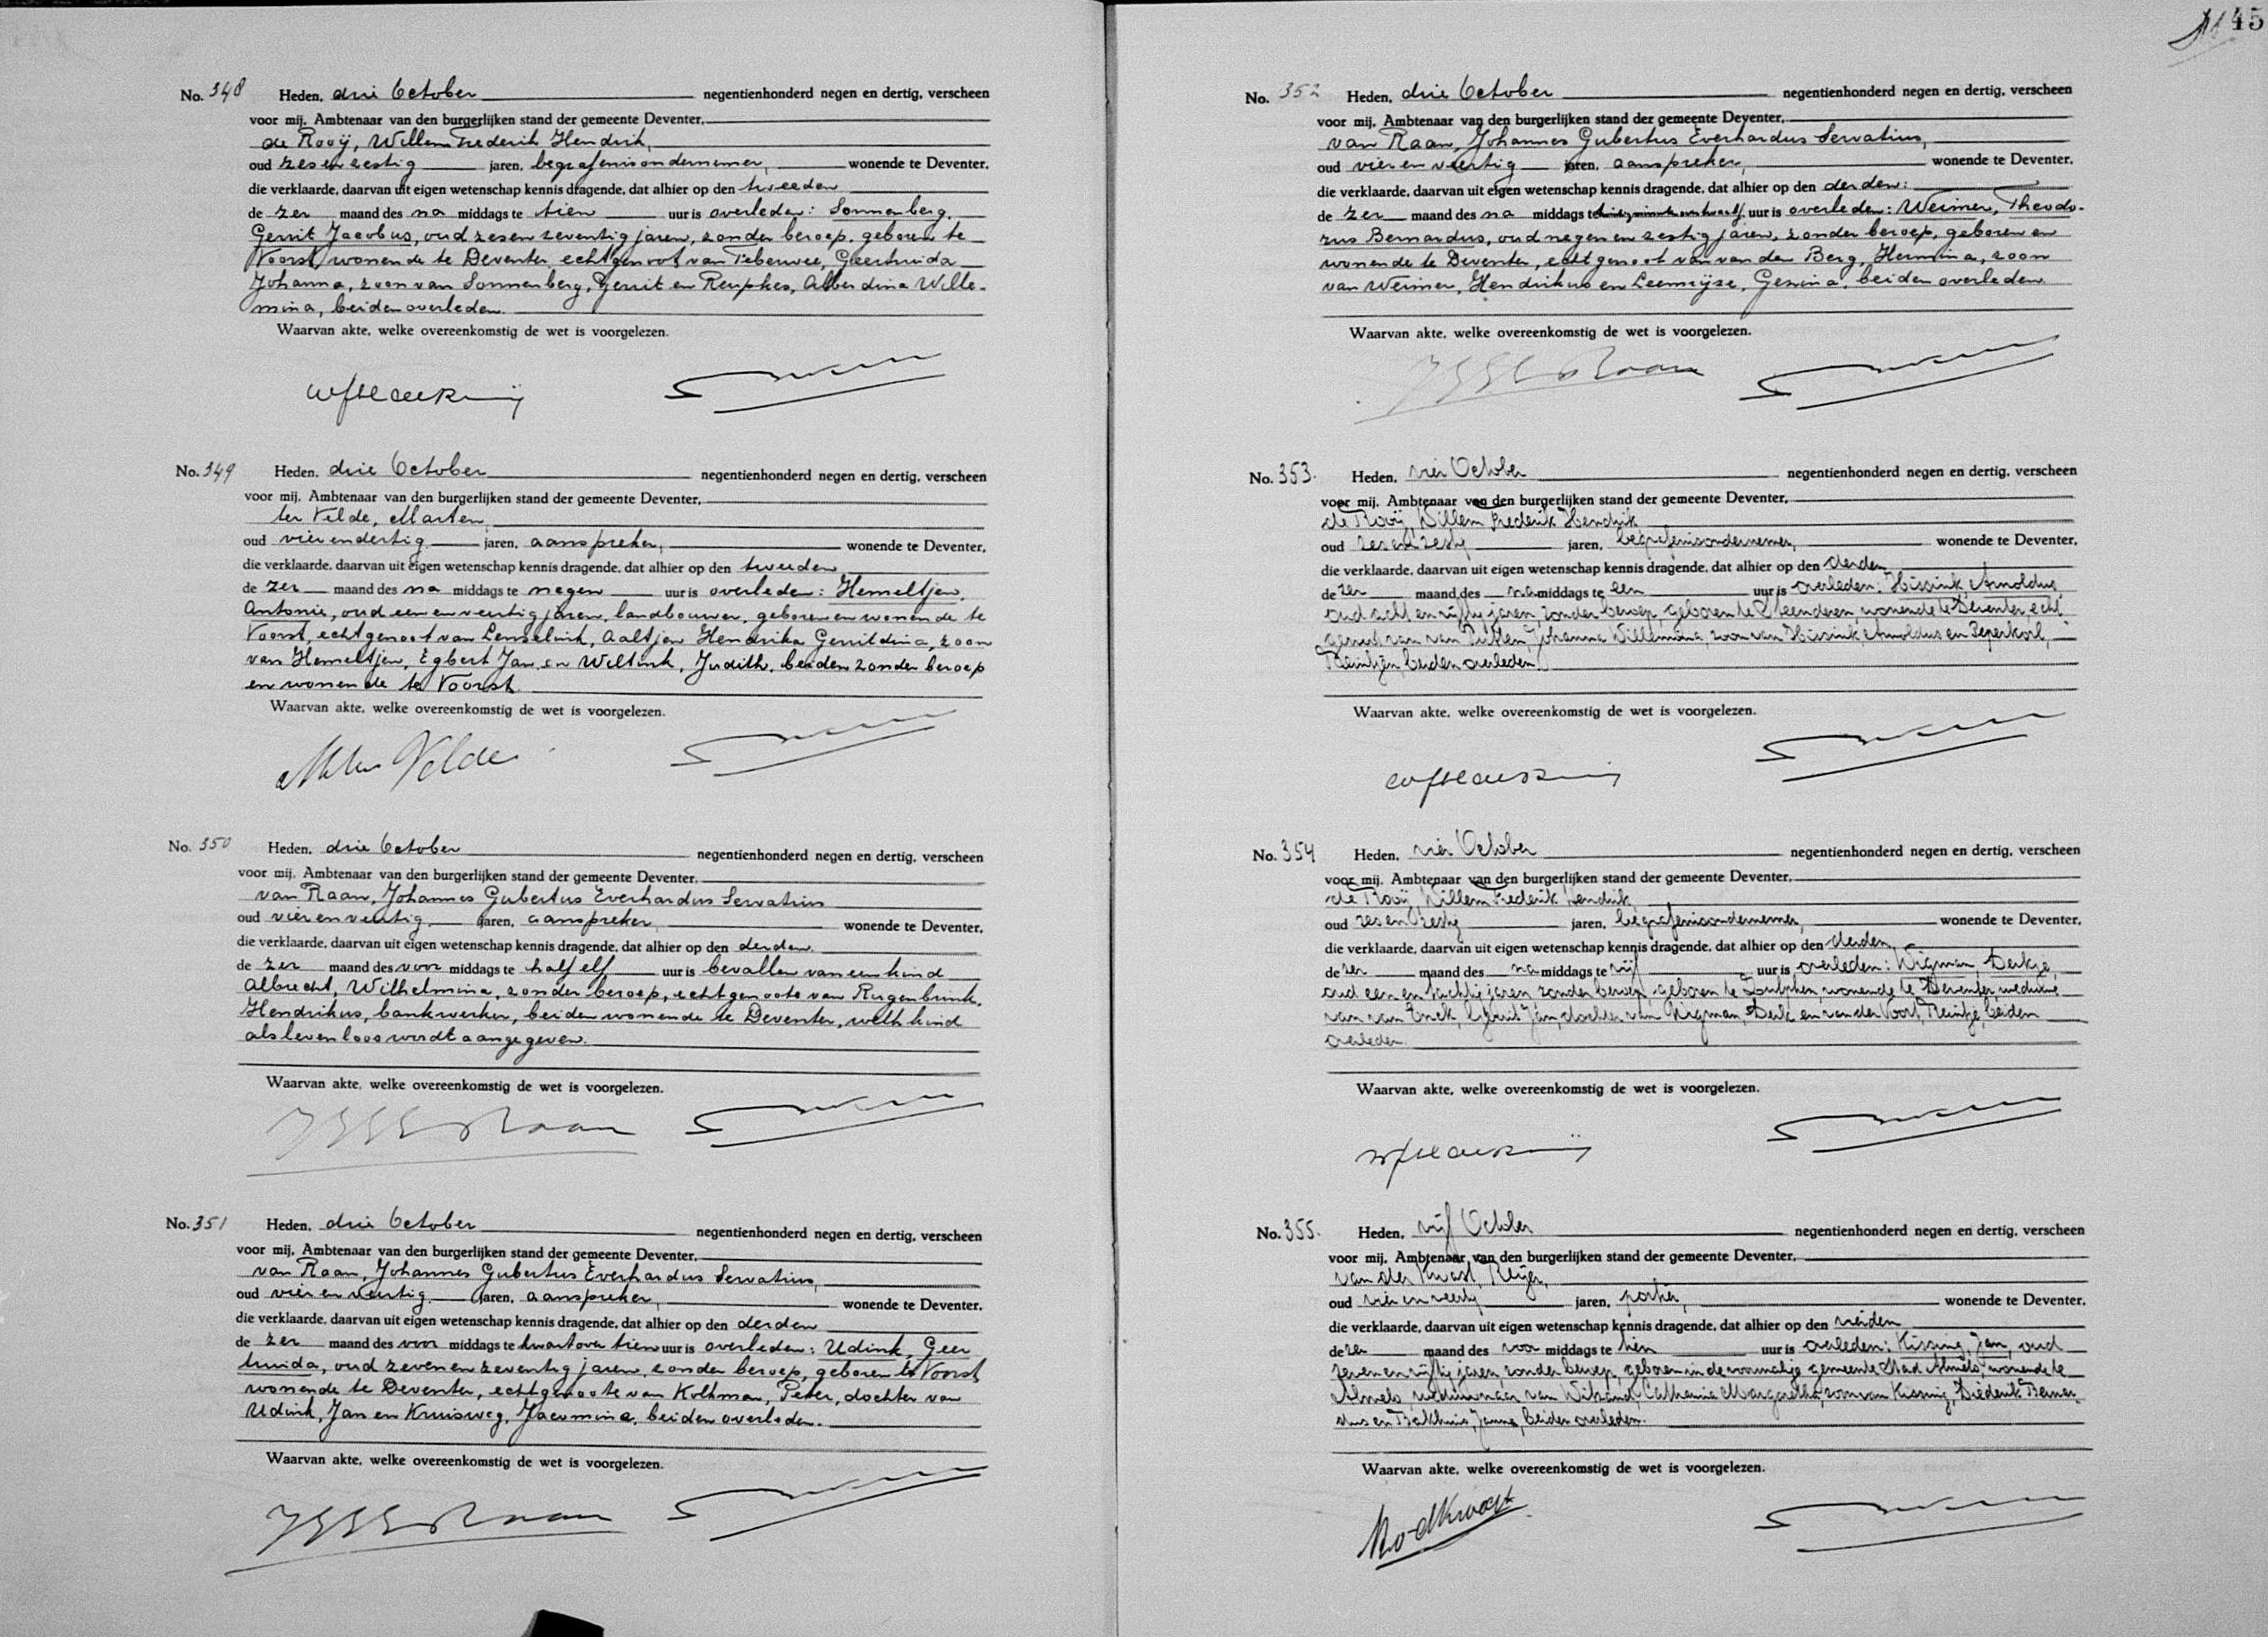 45
No. 348 Heden, drie October negentienhonderd negen en dertig, verscheen
voor mij, Ambtenaar van den burgerlijken stand der gemeente Deventer,
de Rooij, Willem Frederik Hendrik,
oud zesenzestig jaren, begrafenisondernemer, wonende te Deventer,
die verklaarde, daarvan uit eigen wetenschap kennis dragende, dat alhier op den tweeden
de zer maand des na middags te tien uur is overleden: Sonnenberg,
Gerrit Jacobus, oud zesenzeventig jaren, zonder beroep, geboren te
Voorst, wonende te Deventer, echtgenoot van Teberwee, Geertruida
Johanna, zoon van Sonnenberg, Gerrit en Reupkes, Alberdina Wille-
mina, beiden overleden.
Waarvan akte, welke overeenkomstig de wet is voorgelezen.
No. 349 Heden, drie October negentienhonderd negen en dertig, verscheen
voor mij, Ambtenaar van den burgerlijken stand der gemeente Deventer,
ter Velde, Marten,
oud vierendertig jaren, aanspreker, wonende te Deventer,
die verklaarde, daarvan uit eigen wetenschap kennis dragende, dat alhier op den tweeden
de zer maand des na middags te negen uur is overleden: Hemeltjen,
Antonie, oud eenenveertig jaren, landbouwer, geboren en wonende te
Voorst, echtgenoot van Lenselink, Aaltjen Hendrika Gerritdina, zoon
van Hemeltjen, Egbert Jan en Weltink, Judith, beiden zonder beroep
en wonende te Voorst.
Waarvan akte, welke overeenkomstig de wet is voorgelezen.
M ter Velde
No. 350 Heden, drie October negentienhonderd negen en dertig, verscheen
voor mij, Ambtenaar van den burgerlijken stand der gemeente Deventer,
van Raan, Johannes Gubertus Everhardus Servatius
oud vierenveertig jaren, aanspreker, wonende te Deventer,
die verklaarde, daarvan uit eigen wetenschap kennis dragende, dat alhier op den derden
de zer maand des voor middags te half elf uur is bevallen van een kind
Albrecht, Wilhelmina, zonder beroep, echtgenoote van Rugenbrink,
Hendrikus, bankwerker, beiden wonende te Deventer, welk kind
als levenloos wordt aangegeven.
Waarvan akte, welke overeenkomstig de wet is voorgelezen.
JGES v Raan
No. 351 Heden, drie October negentienhonderd negen en dertig, verscheen
voor mij, Ambtenaar van den burgerlijken stand der gemeente Deventer,
van Raan, Johannes Gubertus Everhardus Servatius,
oud vierenveertig jaren, aanspreker, wonende te Deventer,
die verklaarde, daarvan uit eigen wetenschap kennis dragende, dat alhier op den derden
de zer maand des voor middags te kwart over tien uur is overleden: Udink, Geer
truida, oud zevenenzeventig jaren, zonder beroep, geboren te Voorst,
wonende te Deventer, echtgenoote van Kolkman, Peter, dochter van
Udink, Jan en Kruisweg, Jacomina, beiden overleden.
Waarvan akte, welke overeenkomstig de wet is voorgelezen.
JGES v Raan
No. 352 Heden, drie October negentienhonderd negen en dertig, verscheen
voor mij, Ambtenaar van den burgerlijken stand der gemeente Deventer,
van Raan, Johannes Gubertus Everhardus Servatius,
oud vierenveertig jaren, aanspreker, wonende te Deventer,
die verklaarde, daarvan uit eigen wetenschap kennis dragende, dat alhier op den derden:
de zer maand des na middags te uur is overleden: Weimer, Theodo-
rus Bernardus, oud negenenzestig jaren, zonder beroep, geboren en
wonende te Deventer, echtgenoot van van den Berg, Hermina, zoon
van Weimer, Hendrikus en Leemrijse, Gesina, beiden overleden.
Waarvan akte, welke overeenkomstig de wet is voorgelezen.
JGES v Raan
No. 353. Heden, vier October negentienhonderd negen en dertig, verscheen
voor mij, Ambtenaar van den burgerlijken stand der gemeente Deventer,
de Rooij, Willem Frederik Hendrik
oud zesenzestig jaren, begrafenisondernemer, wonende te Deventer,
die verklaarde, daarvan uit eigen wetenschap kennis dragende, dat alhier op den derden
de zer maand des na middags te een uur is overleden: Hissink, Arnoldus,
oud acht en vijftig jaren, zonder beroep, geboren te Steenderen, wonende te Deventer, echt
genoot van van Putten, Johanna Willemina, zoon van Hissink, Arnoldus en Peperkorl,
Reintjen, beiden overleden.
Waarvan akte, welke overeenkomstig de wet is voorgelezen.
No. 354 Heden, vier October negentienhonderd negen en dertig, verscheen
voor mij, Ambtenaar van den burgerlijken stand der gemeente Deventer,
de Rooij, Willem Frederik Hendrik,
oud zesenzestig jaren, begrafenisondernemer, wonende te Deventer,
die verklaarde, daarvan uit eigen wetenschap kennis dragende, dat alhier op den derden
de zer maand des na middags te vijf uur is overleden: Wigman, Derkje,
oud een en tachtig jaren, zonder beroep, geboren te Zutphen, wonende te Deventer, weduwe
van van Enck, Gerrit Jan, dochter van Wigman, Derk en van der Voort, Reintje, beiden
overleden.
Waarvan akte, welke overeenkomstig de wet is voorgelezen.
No. 355. Heden, vijf October negentienhonderd negen en dertig, verscheen
voor mij, Ambtenaar van den burgerlijken stand der gemeente Deventer,
van der Kwast, Reijer,
oud vier en veertig jaren, portier, wonende te Deventer,
die verklaarde, daarvan uit eigen wetenschap kennis dragende, dat alhier op den vierden
de zer maand des voor middags te tien uur is overleden: Kissing, Jan, oud
zeven en vijftig jaren, zonder beroep, geboren in de voormalige gemeente Stad Almelo, wonende te
Almelo, weduwnaar van Catharina Margaretha, zoon van Kissing, Diederik Bernar-
dus en Bakhuis, Janna, beiden overleden.
Waarvan akte, welke overeenkomstig de wet is voorgelezen.